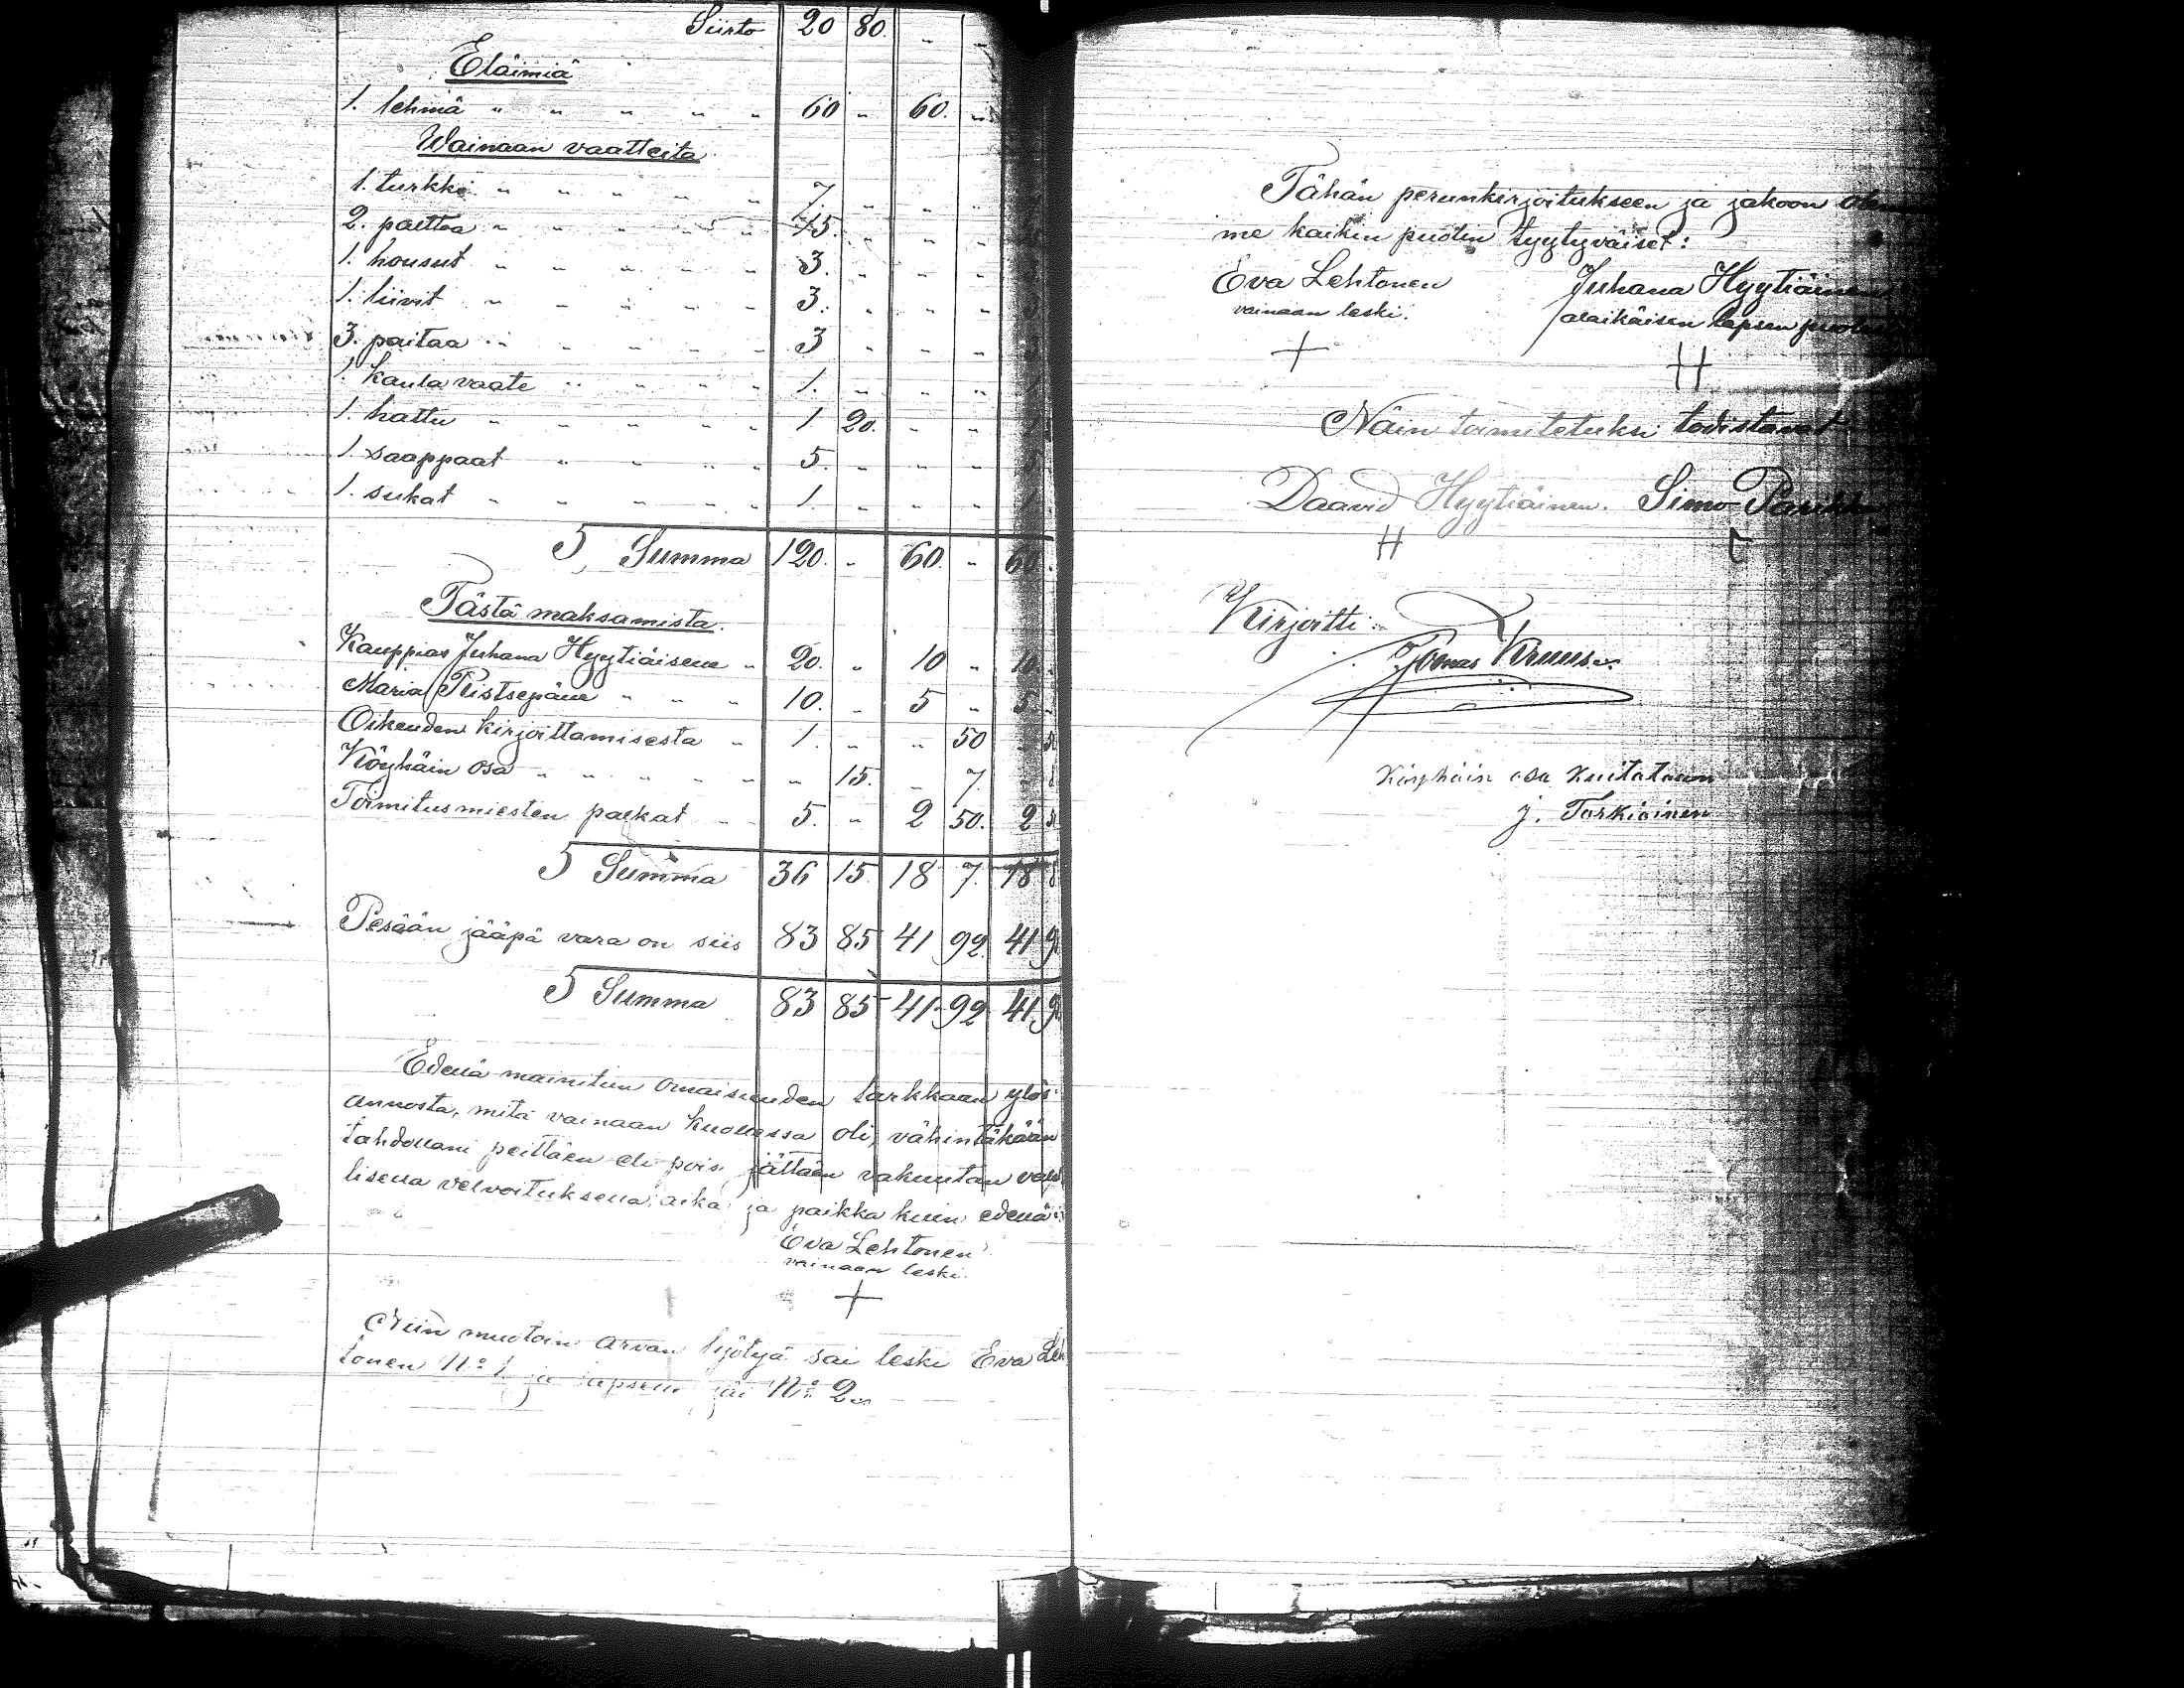 Siirto 20 80. " "
Eläimiä
1. lehmä " " " " " 60 " 60. "
Wainaan vaatteita
1. turkki " " " " " 7. " " "
2. palttoa " " " " " 15. " " "
1. housut " " " " " 3. " " "
1. liivit " " " " " 3. " " " 3
3. paitaa " " " " " 3 " " " 3
1. kaula vaate " " " " 1. " " " 1
1. hattu " " " " " 1 20. " " 1
1. saappaat " " " " 5. " " " 5
1. sukat " " " " " 1. " " " 1
Summa 120. " 60. " 60.
Tästä maksamista.
Kauppias Juhana Hyytiäiselle " 20. " 10 " 10
Maria " " " 10. " 5 " 5.
Oikeuden kirjoittamisesta " 1. " " 50
Köyhäin osa " " " " " " 15. " 7.
Toimitusmiesten palkat " 5. " 2 50. 2
Summa 36 15 18 7. 18
Pesään jääpä vara on siis 83 85 41 92. 41 9
Summa 83 85 41 92 41 9
Edellä mainitun omaisuuden tarkkaan ylös
annosta, mitä vainaan kuollessa oli, vähintäkään
tahdollani peittäen eli pois jättäen vakuutan vala
lisella velvoituksella; aika ja paikka kuin edellä
Eva Lehtonen
vainaan leski.
+
Niin muotoin arvan lyötyä sai leski Eva Leh
tonen No 1 ja lapselle jäi No 2.
Tähän perunkirjoitukseen ja jakoon olem
me kaikin puolin tyytyväiset:
Eva Lehtonen Juhana Hyytiäinen
vainaan leski. alaikäisen lapsen puolesta
+ H
Näin toimitetuksi todistavat
Daavid Hyytiäinen. Simo Parikka
H
Kirjoitti:
Joonas Kruus.
Köyhäin osa kuitataan
J. Torkiainen